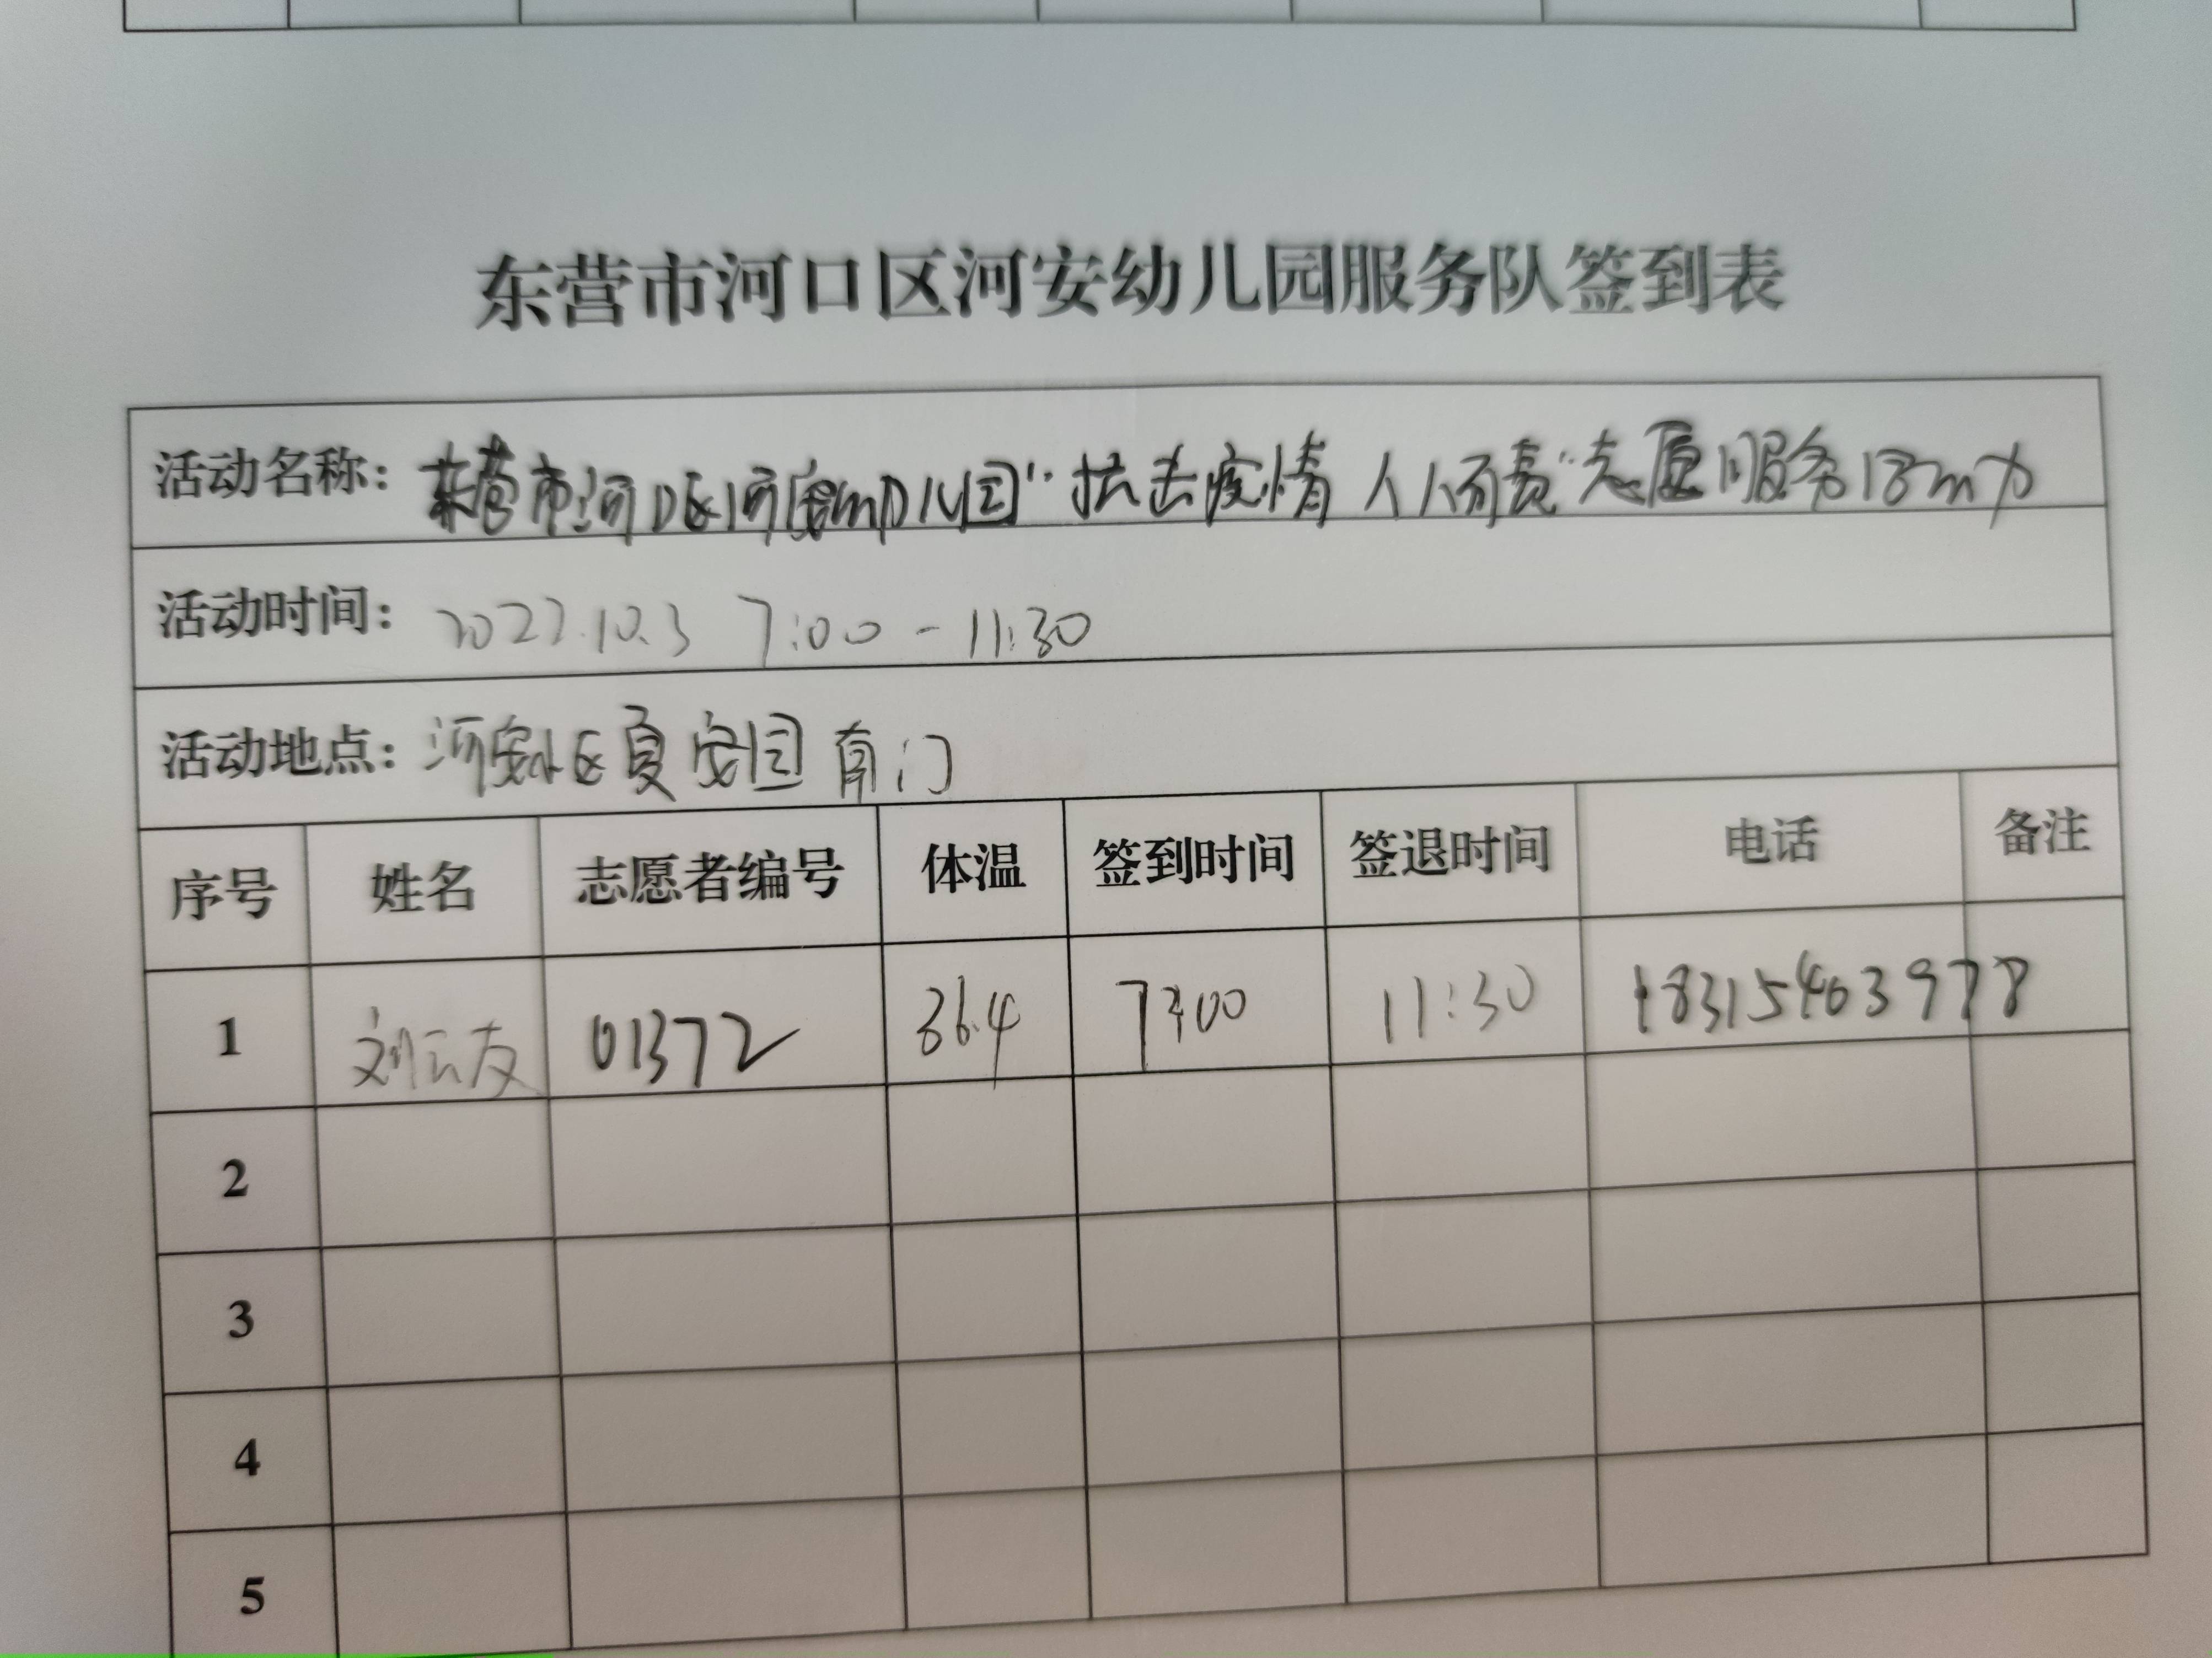 东营市河口区河安幼儿园服务队签到表
活动名称：东营市河口区河安幼儿园"抗击疫情 人人有责"志愿服务
活动时间：2022.10.3 7:00-11:30
活动地点：河安社区夏安园南门
序号 姓名 志愿者编号 体温 签到时间 签退时间 电话 备注
1 刘云友 01372 36.4 7:00 11:30 18315463978
2
3
4
5